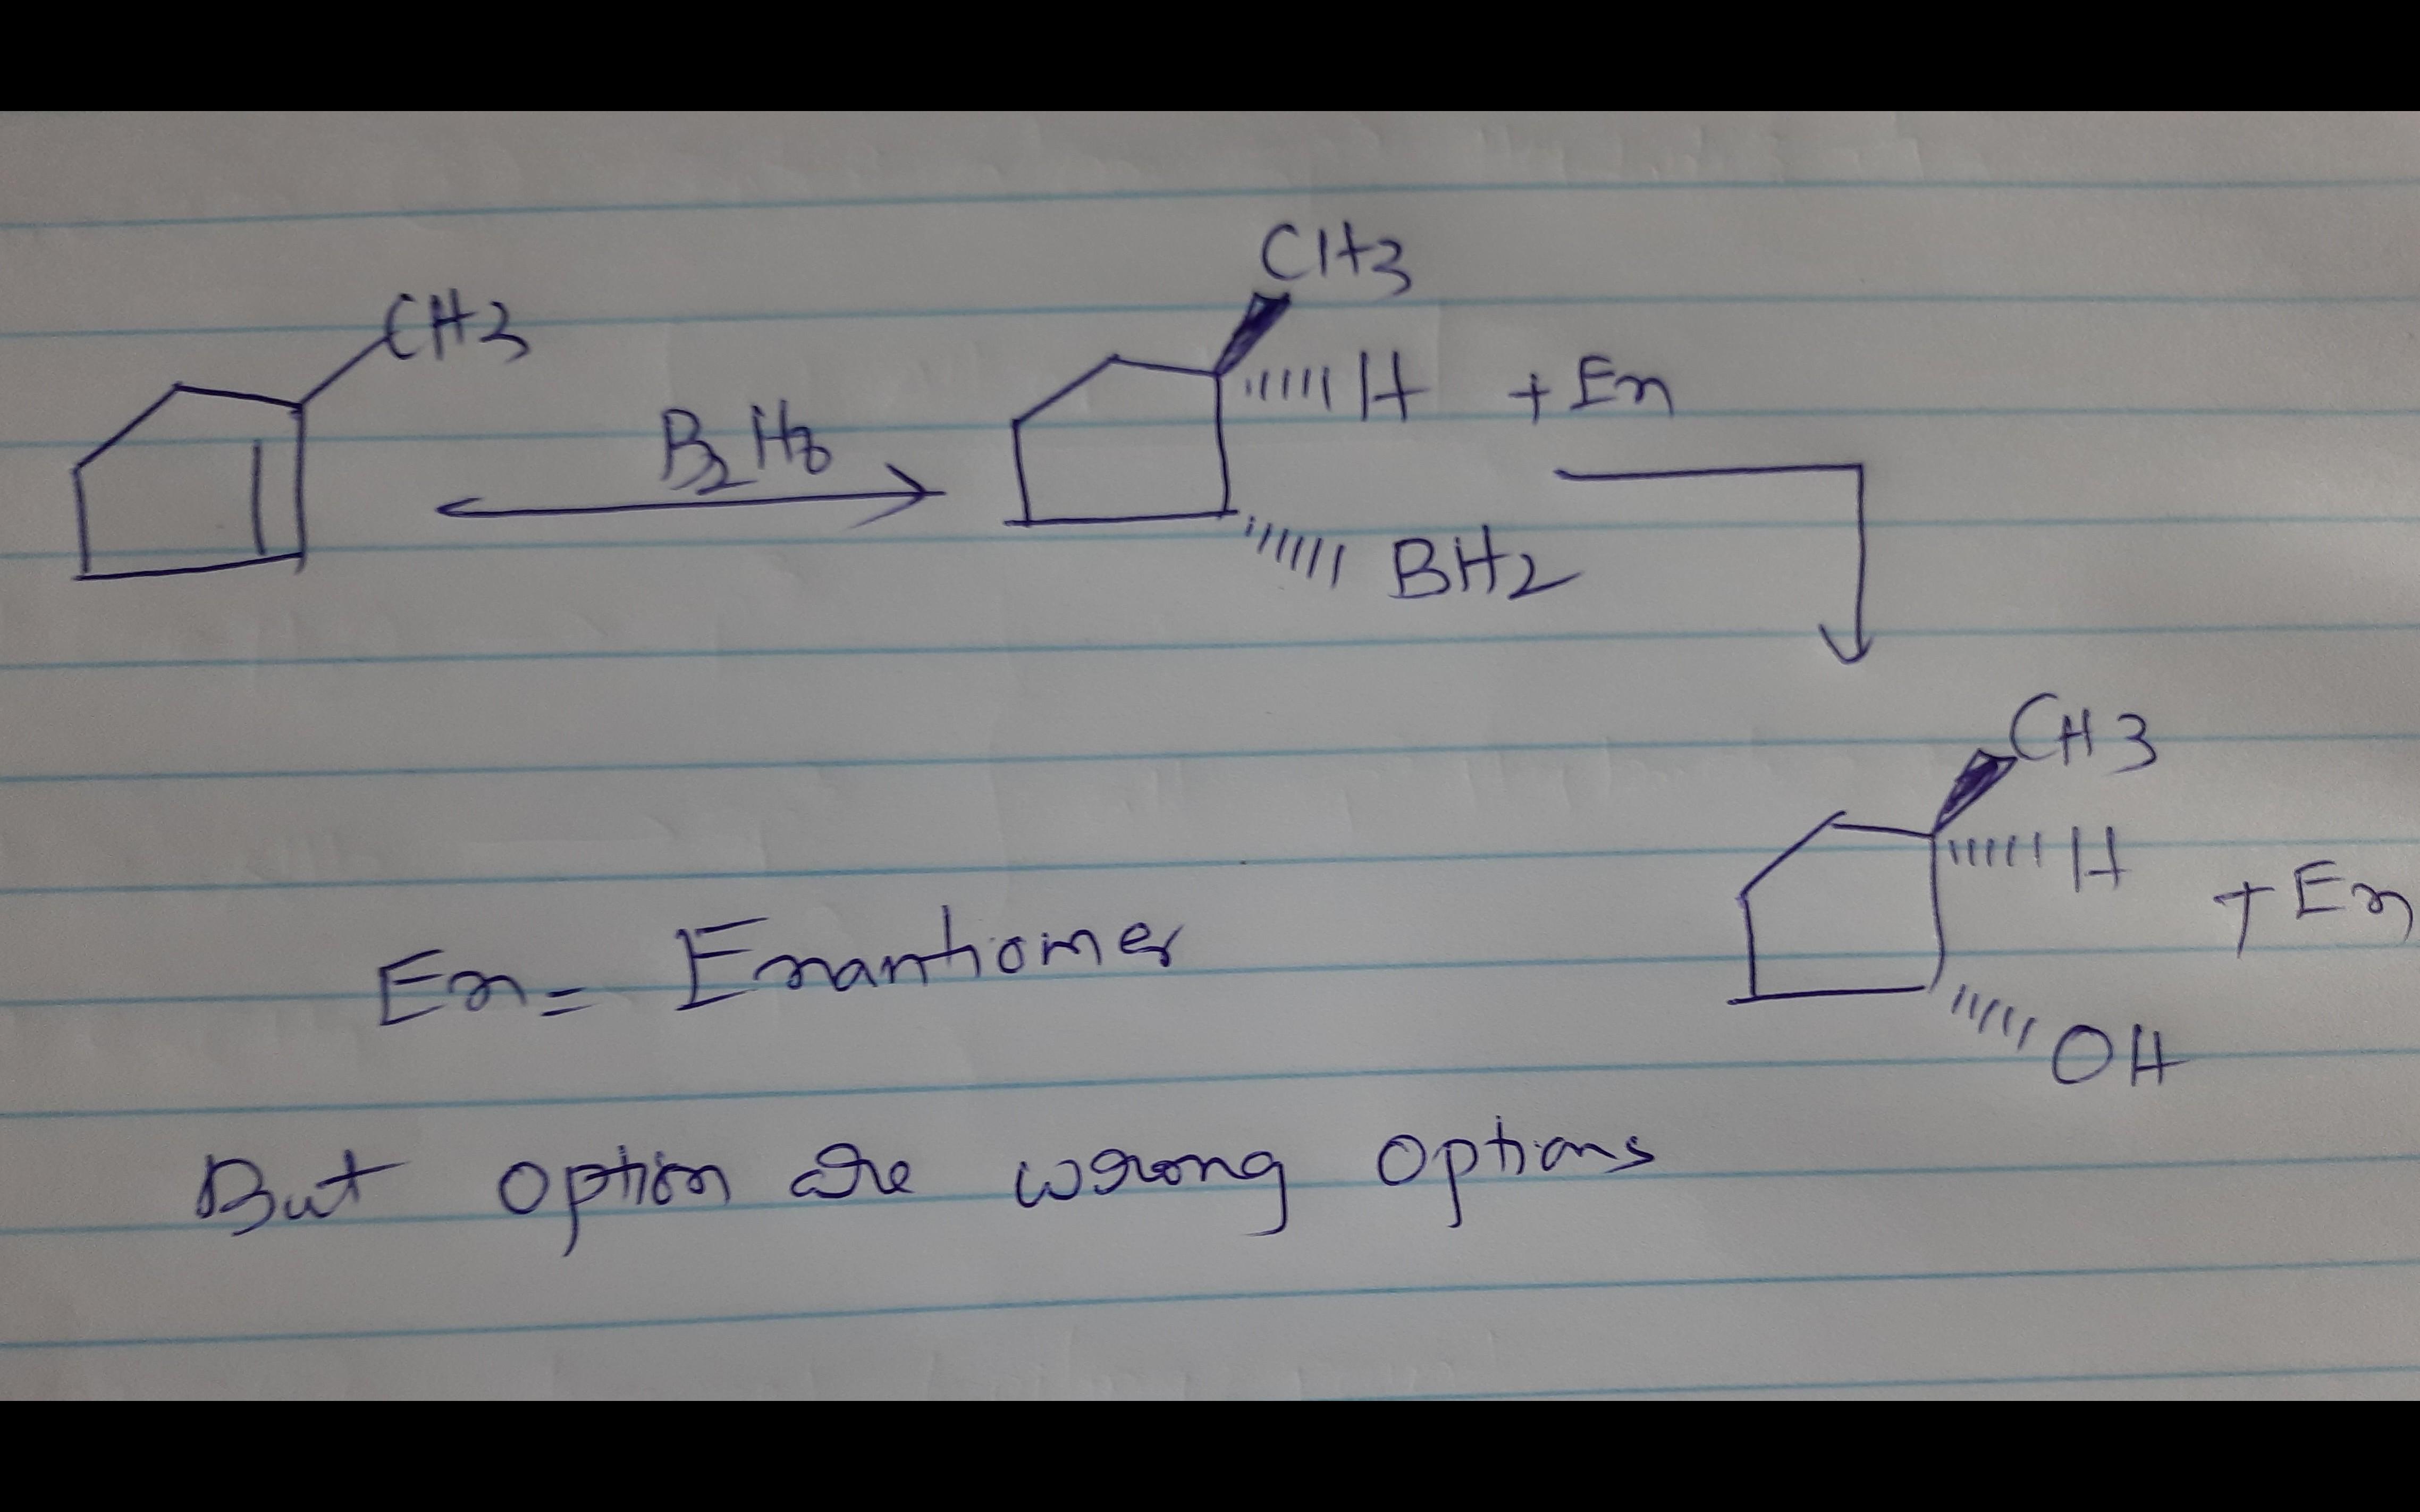 CH3
CH3
B2H6
H + En
BH2
CH3
H
+ En
En = Enantiomer
OH
But option are wrong options